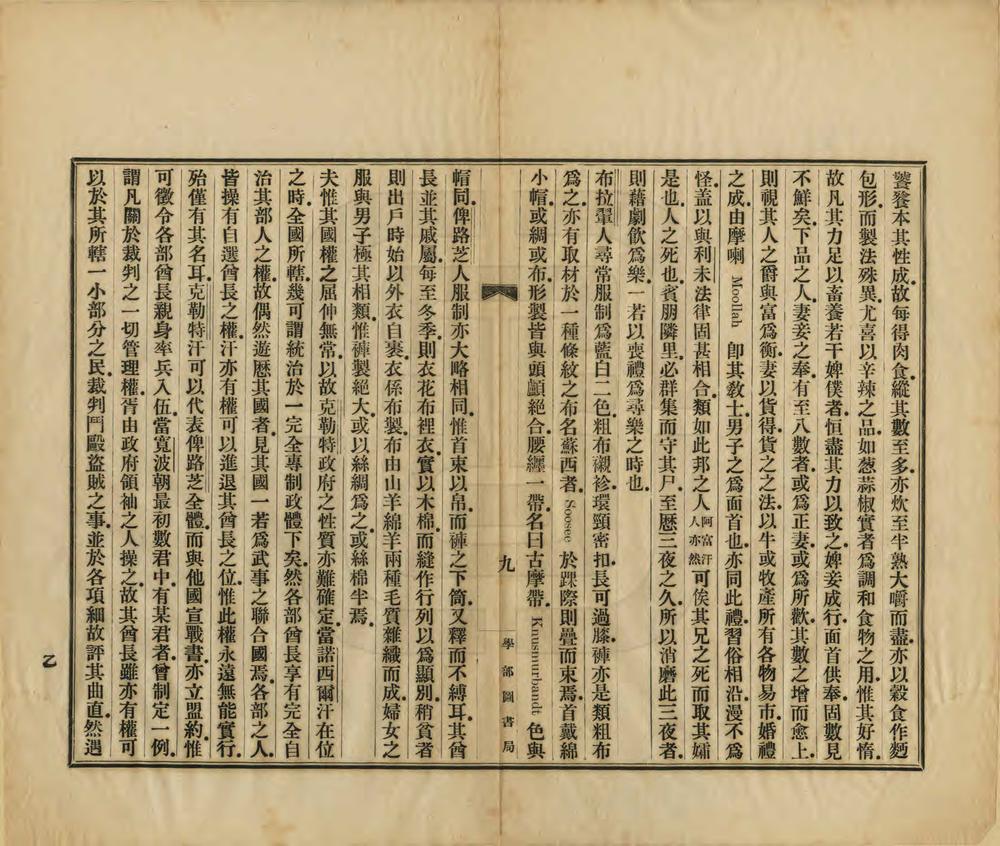 饕餮本其性成故每得肉食縱其數至多亦炊至半熟大嚼而盡亦以穀食作麪
包形而製法殊異尤喜以辛辣之品如葱蒜椒實者爲調和食物之用惟其好惰
故凡其力足以畜養若干婢僕者恒盡其力以致之婢妾成行面首供奉固數見
不鮮矣下品之人妻妾之奉有至八數者或爲正妻或爲所歡其數之增而愈上
則視其人之爵與富爲衡妻以貨得貨之之法以牛或牧產所有各物易市婚禮
之成由摩喇 Moollah 卽其敎士男子之爲面首也亦同此禮習俗相沿漫不爲
怪蓋以與利未法律固甚相合類如此邦之人阿富汗人亦然可俟其兄之死而取其孀
是也人之死也賓朋隣里必群集而守其尸至歷三夜之久所以消磨此三夜者
則藉劇飲爲樂一若以喪禮爲尋樂之時也
布拉鞾人尋常服制爲藍白二色粗布襯袗環頸密扣長可過膝褲亦是類粗布
爲之亦有取材於一種條紋之布名蘇西者 Soosee 於踝際則疊而束焉首戴綿
小帽或綢或布形製皆與頭顱絕合腰纏一帶名曰古摩帶 Kmusmurbandt 色與
九
學部圖書局
帽同俾路芝人服制亦大略相同惟首束以帛而褲之下筒又釋而不縛耳其酋
長並其戚屬每至冬季則衣花布裡衣實以木棉而縫作行列以爲顯別稍貧者
則出戶時始以外衣自裹衣係布製布由山羊綿羊兩種毛質雜織而成婦女之
服與男子極其相類惟褲製絕大或以絲綢爲之或絲棉半焉
夫惟其國權之屈伸無常以故克勒特政府之性質亦難確定當諾西爾汗在位
之時全國所轄幾可謂統治於一完全專制政體下矣然各部酋長享有完全自
治其部人之權故偶然遊歷其國者見其國一若爲武事之聯合國焉各部之人
皆操有自選酋長之權汗亦有權可以進退其酋長之位惟此權永遠無能實行
殆僅有其名耳克勒特汗可以代表俾路芝全體而與他國宣戰書亦立盟約惟
可徵令各部酋長親身率兵入伍當寬波朝最初數君中有某君者曾制定一例
謂凡關於裁判之一切管理權胥由政府領袖之人操之故其酋長雖亦有權可
以於其所轄一小部分之民裁判鬥毆盜賊之事並於各項細故評其曲直然遇
乙